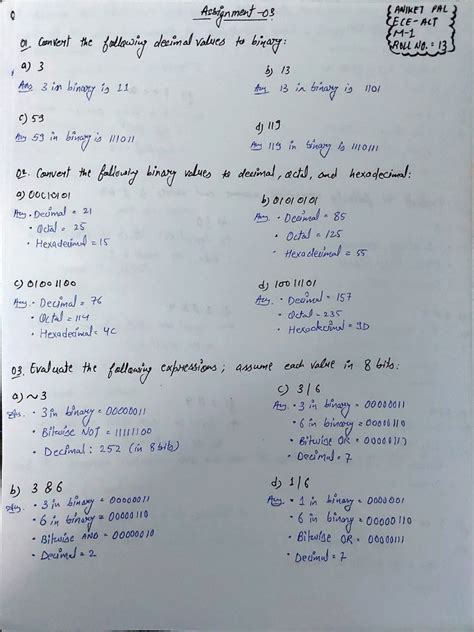 Assignment-03
ANIKET PAL
ECE-ACT
M-1
ROLL NO. = 13
Q1. Convert the following decimal values to binary:
a) 3
Ans 3 in binary is 11
b) 13
Ans 13 in binary is 1101
c) 59
Ans 59 in binary is 111011
d) 119
Ans 119 in binary is 1110111
Q2. Convert the following binary values to decimal, octal, and hexadecimal:
a) 00010101
Ans • Decimal = 21
• Octal = 25
• Hexadecimal = 15
b) 01010101
Ans • Decimal = 85
• Octal = 125
• Hexadecimal = 55
c) 01001100
Ans • Decimal = 76
• Octal = 114
• Hexadecimal = 4C
d) 10011101
Ans • Decimal = 157
• Octal = 235
• Hexadecimal = 9D
Q3. Evaluate the following expressions; assume each value in 8 bits:
a) ~3
Ans. • 3 in binary = 00000011
• Bitwise NOT = 11111100
• Decimal: 252 (in 8 bits)
c) 3/6
Ans. • 3 in binary = 00000011
• 6 in binary = 00000110
• Bitwise OR = 00000111
• Decimal = 7
b) 3 & 6
Ans. • 3 in binary = 00000011
• 6 in binary = 00000110
• Bitwise AND = 00000010
• Decimal = 2
d) 1/6
Ans. • 1 in binary = 00000001
• 6 in binary = 00000110
• Bitwise OR = 00000111
• Decimal = 7